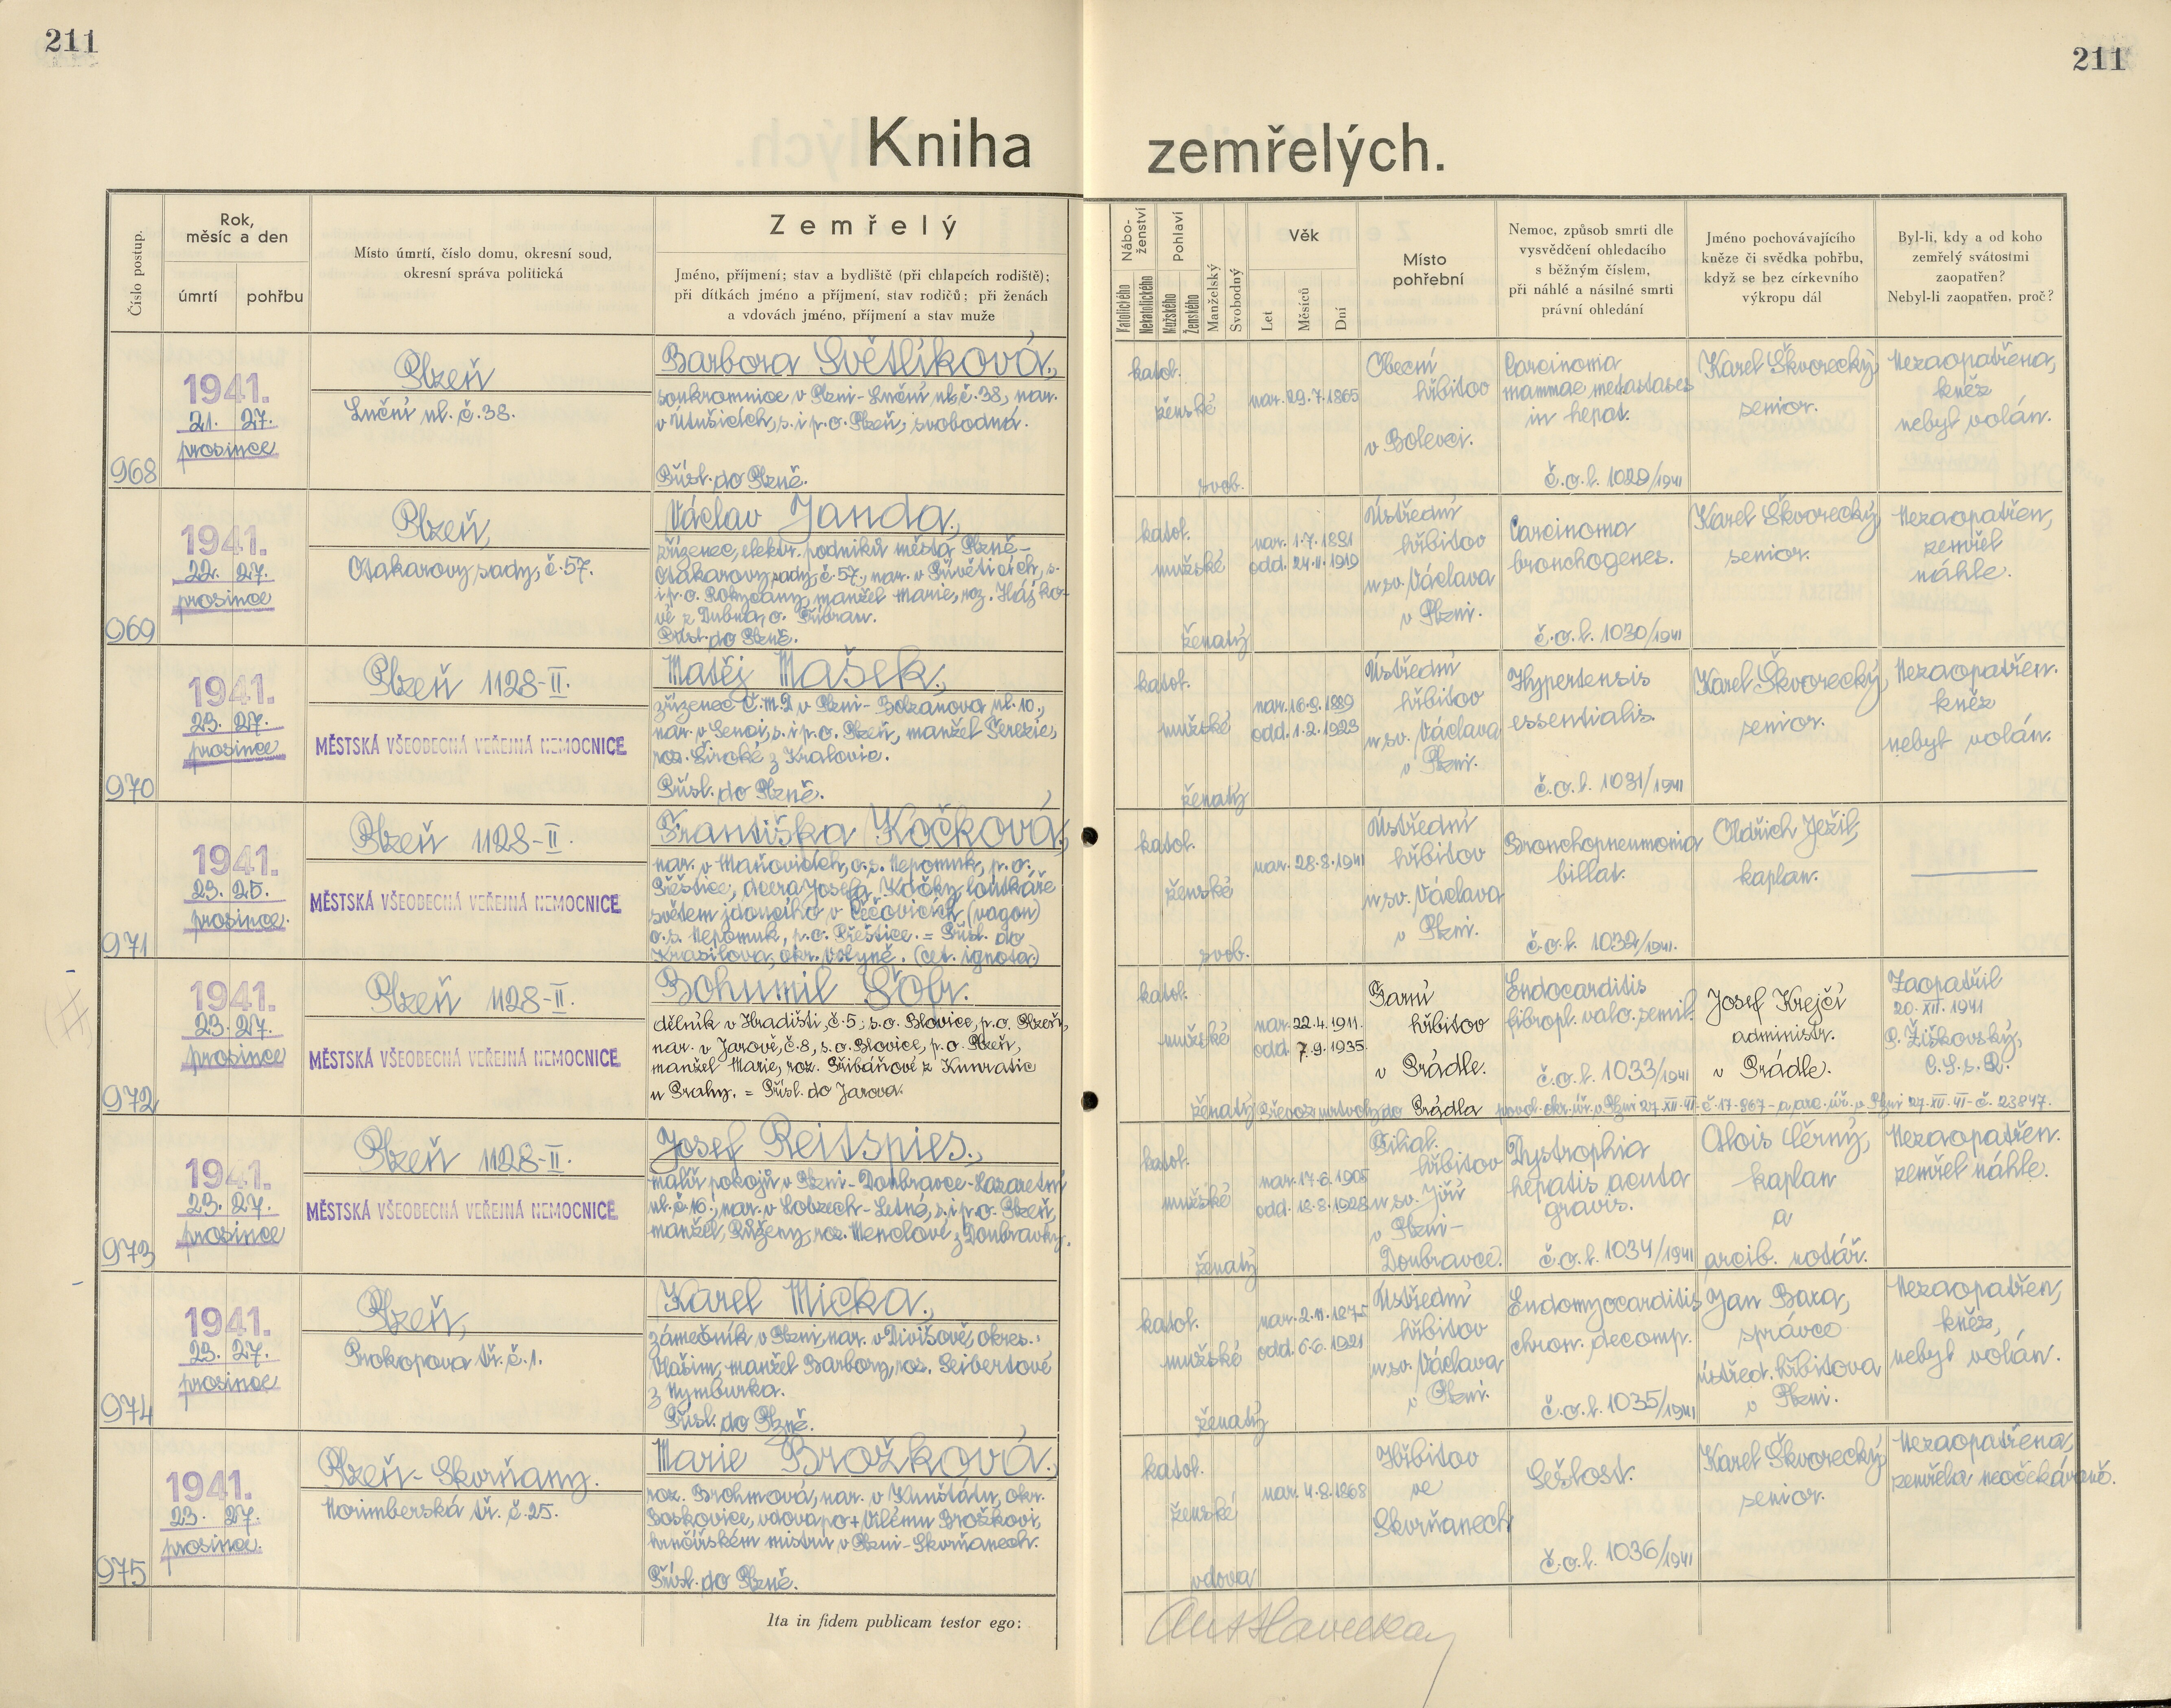 211
211
Kniha zemřelých.
Číslo postup.
Rok,
měsíc a den
úmrtí
pohřbu
Místo úmrtí, číslo domu, okresní soud,
okresní správa politická
Zemřelý
Jméno, příjmení; stav a bydliště (při chlapcích rodiště);
při dítkách jméno a příjmení, stav rodičů; při ženách
a vdovách jméno, příjmení a stav muže
Nábo-
ženství
Katolického
Nekatolického
Pohlaví
Mužského
Ženského
Manželský
Svobodný
Věk
Let
Měsíců
Dní
Místo
pohřební
Nemoc, způsob smrti dle
vysvědčení ohledacího
s běžným číslem,
při náhlé a násilné smrti
právní ohledání
Jméno pochovávajícího
kněze či svědka pohřbu,
když se bez církevního
výkropu dál
Byl-li, kdy a od koho
zemřelý svátostmi
zaopatřen?
Nebyl-li zaopatřen, proč?
968
1941.
21. 27.
prosince
Plzeň
Luční ul. č. 38.
Barbora Světlíková,
soukromnice v Plzni-Luční ul. č. 38, nar.
v Útušicích, s. i p. o. Plzeň, svobodná.
Přísl. do Plzně.
katol.
ženské
svob.
nar. 29.7.1865
Obecní
hřbitov
v Bolevci.
Carcinoma
mammae, metastases
in hepat.
č. o. l. 1029/1941
Karel Škvorecký,
senior.
Nezaopatřena,
kněz
nebyl volán.
969
1941.
22. 27.
prosince
Plzeň,
Otakarovy sady, č. 57.
Václav Janda,
zřízenec, elektr. podniků města Plzně-
Otakarovy sady, č. 57, nar. v Přívěticích, s.
i p. o. Rokycany, manžel Marie, roz. Hájko-
vé z Dubna, o. Příbram.
Přísl. do Plzně.
katol.
mužské
ženatý
nar. 1.7.1891
odd. 24.11.1919
Ústřední
hřbitov
u sv. Václava
v Plzni.
Carcinoma
bronchogenes.
č. o. l. 1030/1941
Karel Škvorecký,
senior.
Nezaopatřen,
zemřel
náhle.
970
1941.
23. 27.
prosince
Plzeň 1128-II.
MĚSTSKÁ VŠEOBECNÁ VEŘEJNÁ NEMOCNICE
Matěj Mašek,
zřízenec Č.M.D. v Plzni-Bolzanova ul. 10.,
nar. v Senci, s. i p. o. Plzeň, manžel Terezie,
roz. Široké z Kralovic.
Přísl. do Plzně.
katol.
mužské
ženatý
nar. 16.9.1889
odd. 1.2.1923
Ústřední
hřbitov
u sv. Václava
v Plzni.
Hypertensis
essentialis
č. o. l. 1031/1941
Karel Škvorecký,
senior.
Nezaopatřen.
kněz
nebyl volán.
971
1941.
23. 25.
prosince.
Plzeň 1128-II.
MĚSTSKÁ VŠEOBECNÁ VEŘEJNÁ NEMOCNICE
Františka Kočková,
nar. v Maňovicích, o. s. Nepomuk, p. o.
Přeštice, dcera Josefa Kočky, loutkáře
světem jdoucího v Čečovicích (vagon)
o. s. Nepomuk, p. o. Přeštice. = Přísl. do
Krasilova, okr. Volyně. (cet. ignota)
katol.
ženské
svob.
nar. 28.8.1941
Ústřední
hřbitov
u sv. Václava
v Plzni.
Bronchopneumonia
billat.
č. o. l. 1032/1941.
Oldřich Ježil,
kaplan.
972
1941.
23. 27.
prosince
Plzeň 1128-II.
MĚSTSKÁ VŠEOBECNÁ VEŘEJNÁ NEMOCNICE
Bohumil Šobr.
dělník v Hradišti, č. 5, s. o. Blovice, p. o. Plzeň,
nar. v Jarově, č. 8, s. o. Blovice, p. o. Plzeň,
manžel Marie, roz. Přibáňové z Kunratic
u Prahy. = Přísl. do Jarova.
katol.
mužské
ženatý
nar. 22.4.1911.
odd. 7.9.1935.
Farní
hřbitov
v Prádle.
Endocarditis
fibropl. valv. semil.
č. o. l. 1033/1941
Josef Krejčí
administr.
v Prádle.
Zaopatřil
20. XII. 1941
P. Žižkovský,
C. S. s. R.
Převoz mrtvoly do Prádla povol. okr. úř. v Plzni 27. XII. 41 - č. 17-867 - a arc. úř. v Plzni 27. XII. 41 - č. 23847.
973
1941.
23. 27.
prosince
Plzeň 1128-II.
MĚSTSKÁ VŠEOBECNÁ VEŘEJNÁ NEMOCNICE
Josef Reitspies,
malíř pokojů v Plzni-Doubravce-Lazaretní
ul. č. 16., nar. v Lobzech-Letné, s. i p. o. Plzeň,
manžel, Růženy, roz. Menclové z Doubravky.
katol.
mužské
ženatý
nar. 17.6.1905
odd. 18.8.1928
Filial.
hřbitov
u sv. Jiří
v Plzni-
Doubravce.
Dystrophia
hepatis acuta
gravis.
č. o. l. 1034/1941
Alois Černý,
kaplan
a
arcib. notář.
Nezaopatřen.
zemřel náhle.
974
1941.
23. 27.
prosince
Plzeň,
Prokopova tř. č. 1.
Karel Micka,
zámečník v Plzni, nar. v Divišově, okres.
Vlašim, manžel Barbory, roz. Seibertové
z Nymburka.
Přísl. do Plzně.
katol.
mužské
ženatý
nar. 2.11.1875
odd. 6.6.1921
Ústřední
hřbitov
u sv. Václava
v Plzni.
Endomyocarditis
chron. decomp.
č. o. l. 1035/1941
Jan Baxa,
správce
ústřed. hřbitova
v Plzni.
Nezaopatřen,
kněz,
nebyl volán.
975
1941.
23. 27.
prosince.
Plzeň-Skvrňany.
Norimberská tř. č. 25.
Marie Brožková,
roz. Brohmová, nar. v Kunštátu, okr.
Boskovice, vdova po + Vilému Brožkovi,
hrnčířském mistru v Plzni-Skvrňanech.
Přísl. do Plzně.
katol.
ženské
vdova
nar. 4.8.1868
Hřbitov
ve
Skvrňanech
Sešlost.
č. o. l. 1036/1941
Karel Škvorecký
senior.
Nezaopatřena,
zemřela neočekávaně.
Ita in fidem publicam testor ego: